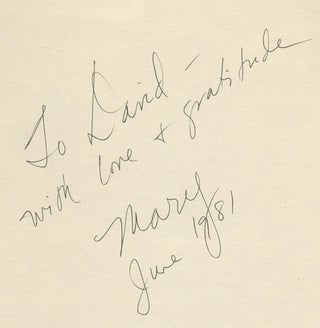 To David —
with love + gratitude
Mary
June 1981